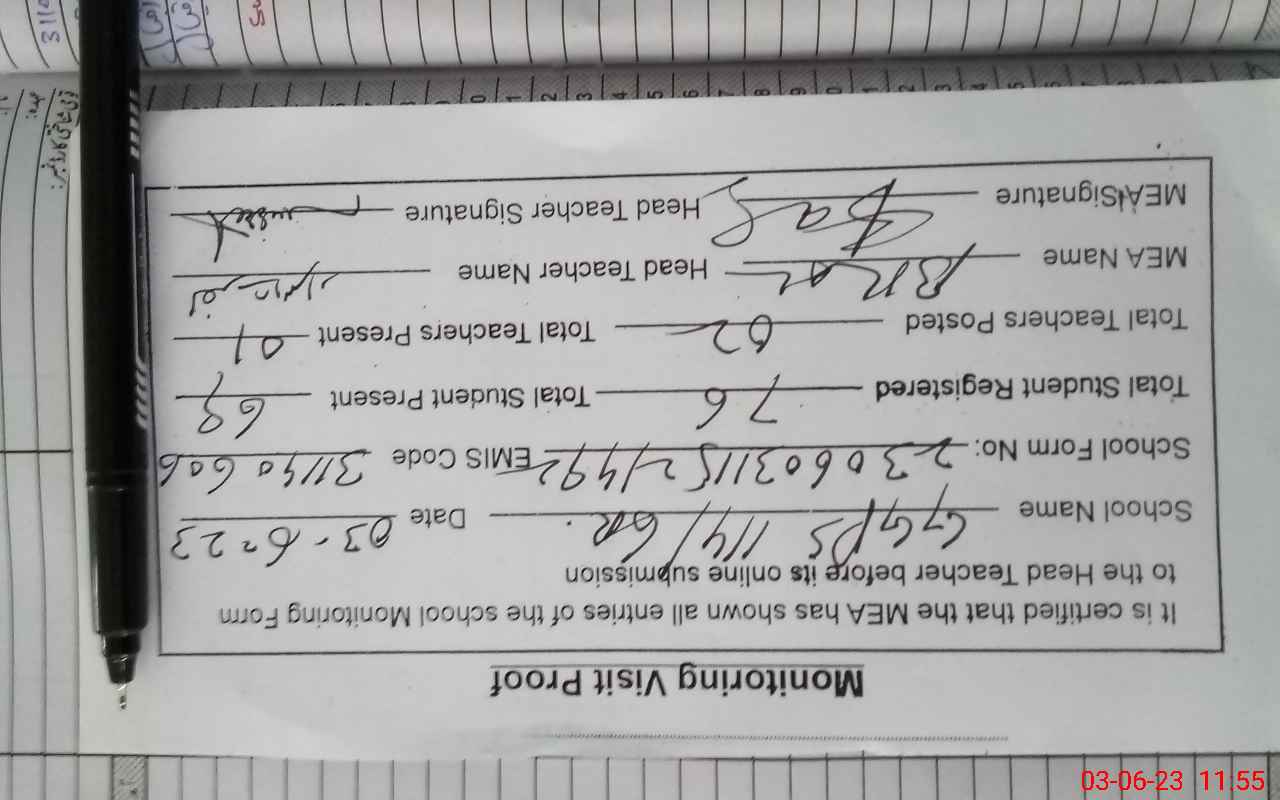 Monitoring Visit Proof
It is certified that the MEA has shown all entries of the school Monitoring Form
to the Head Teacher before its online submission
School Name GGPS 114/6R. Date 03-6-23
School Form No: 23060311521492 EMIS Code 31140606
Total Student Registered 76 Total Student Present 69
Total Teachers Posted 02 Total Teachers Present 01
MEA Name Head Teacher Name
MEA Signature Head Teacher Signature
03-06-23 11:55